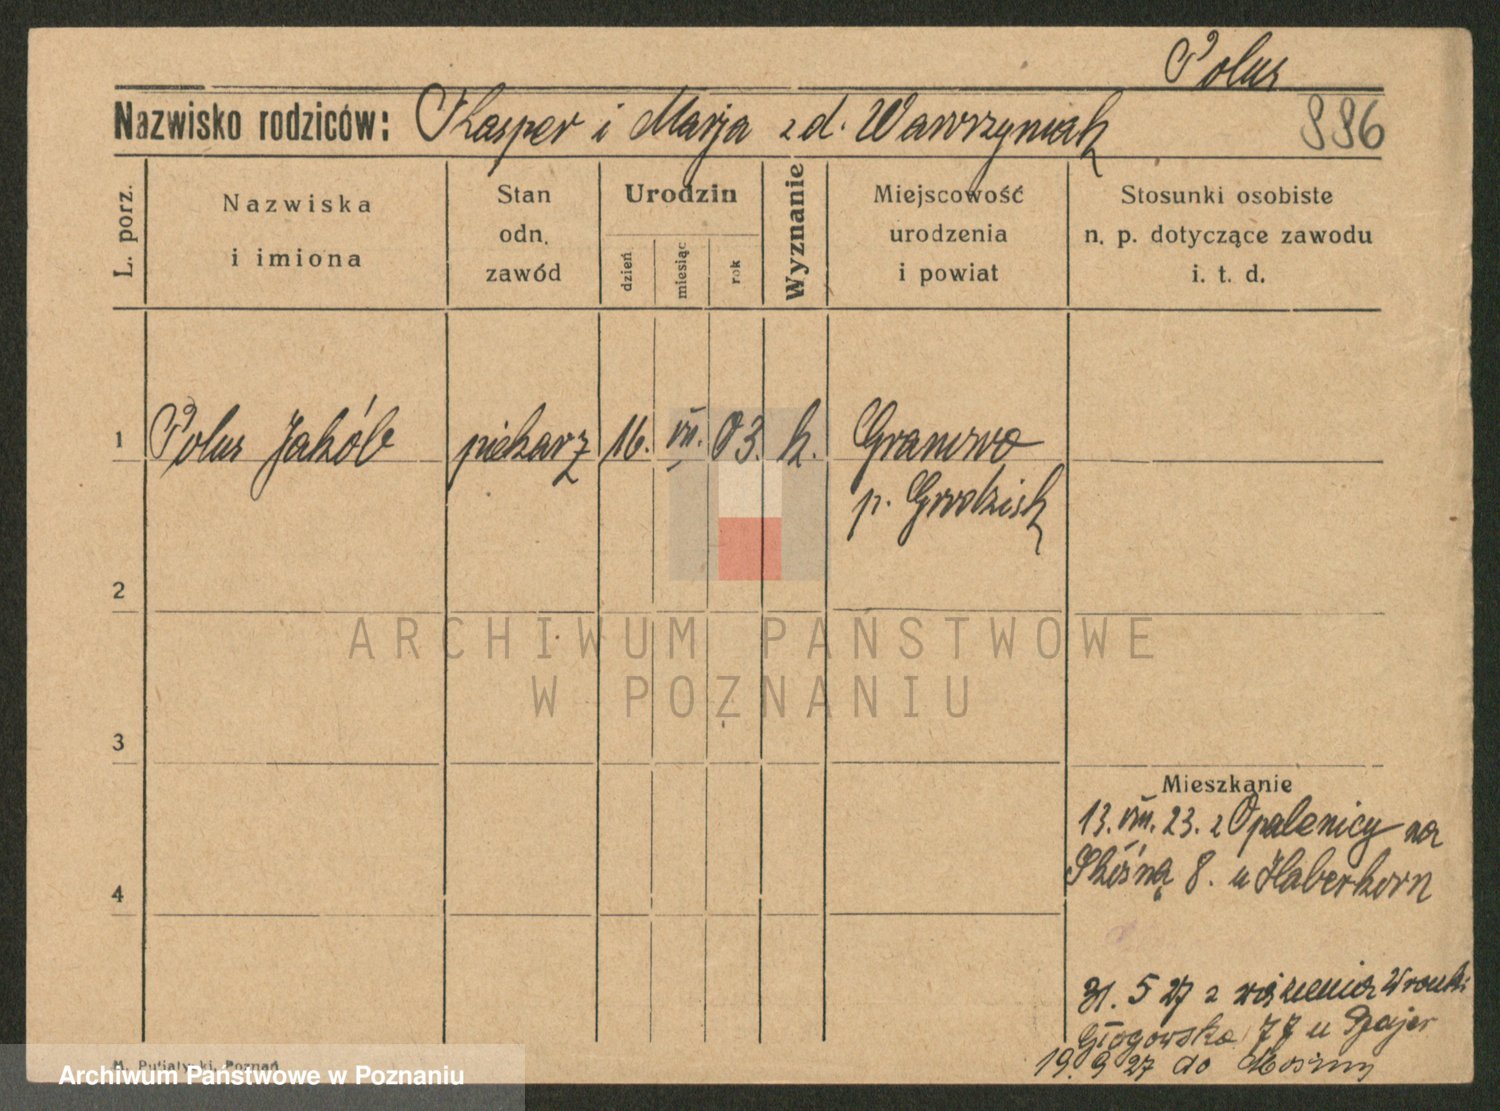 Polus
Nazwisko rodziców: Kasper i Marja z d. Wawrzyniak 886
L. porz.
Nazwiska
i imiona
Stan
odn.
zawód
Urodzin
dzień
miesiąc
rok
Wyznanie
Miejscowość
urodzenia
i powiat
Stosunki osobiste
n. p. dotyczące zawodu
i. t. d.
1 Polus Jakób piekarz 16. VII. 03. k. Granowo
p. Grodzisk
2
ARCHIWUM PAŃSTWOWE
W POZNANIU
3
Mieszkanie
13. VIII. 23. z Opalenicy na
Skośną 8. u Haberkorn
4
31. 5 27 z więzienia Wronki
Głogowska 77 u
19. 9 27 do Mosiny
M. Putiatycki, Poznań
Archiwum Państwowe w Poznaniu